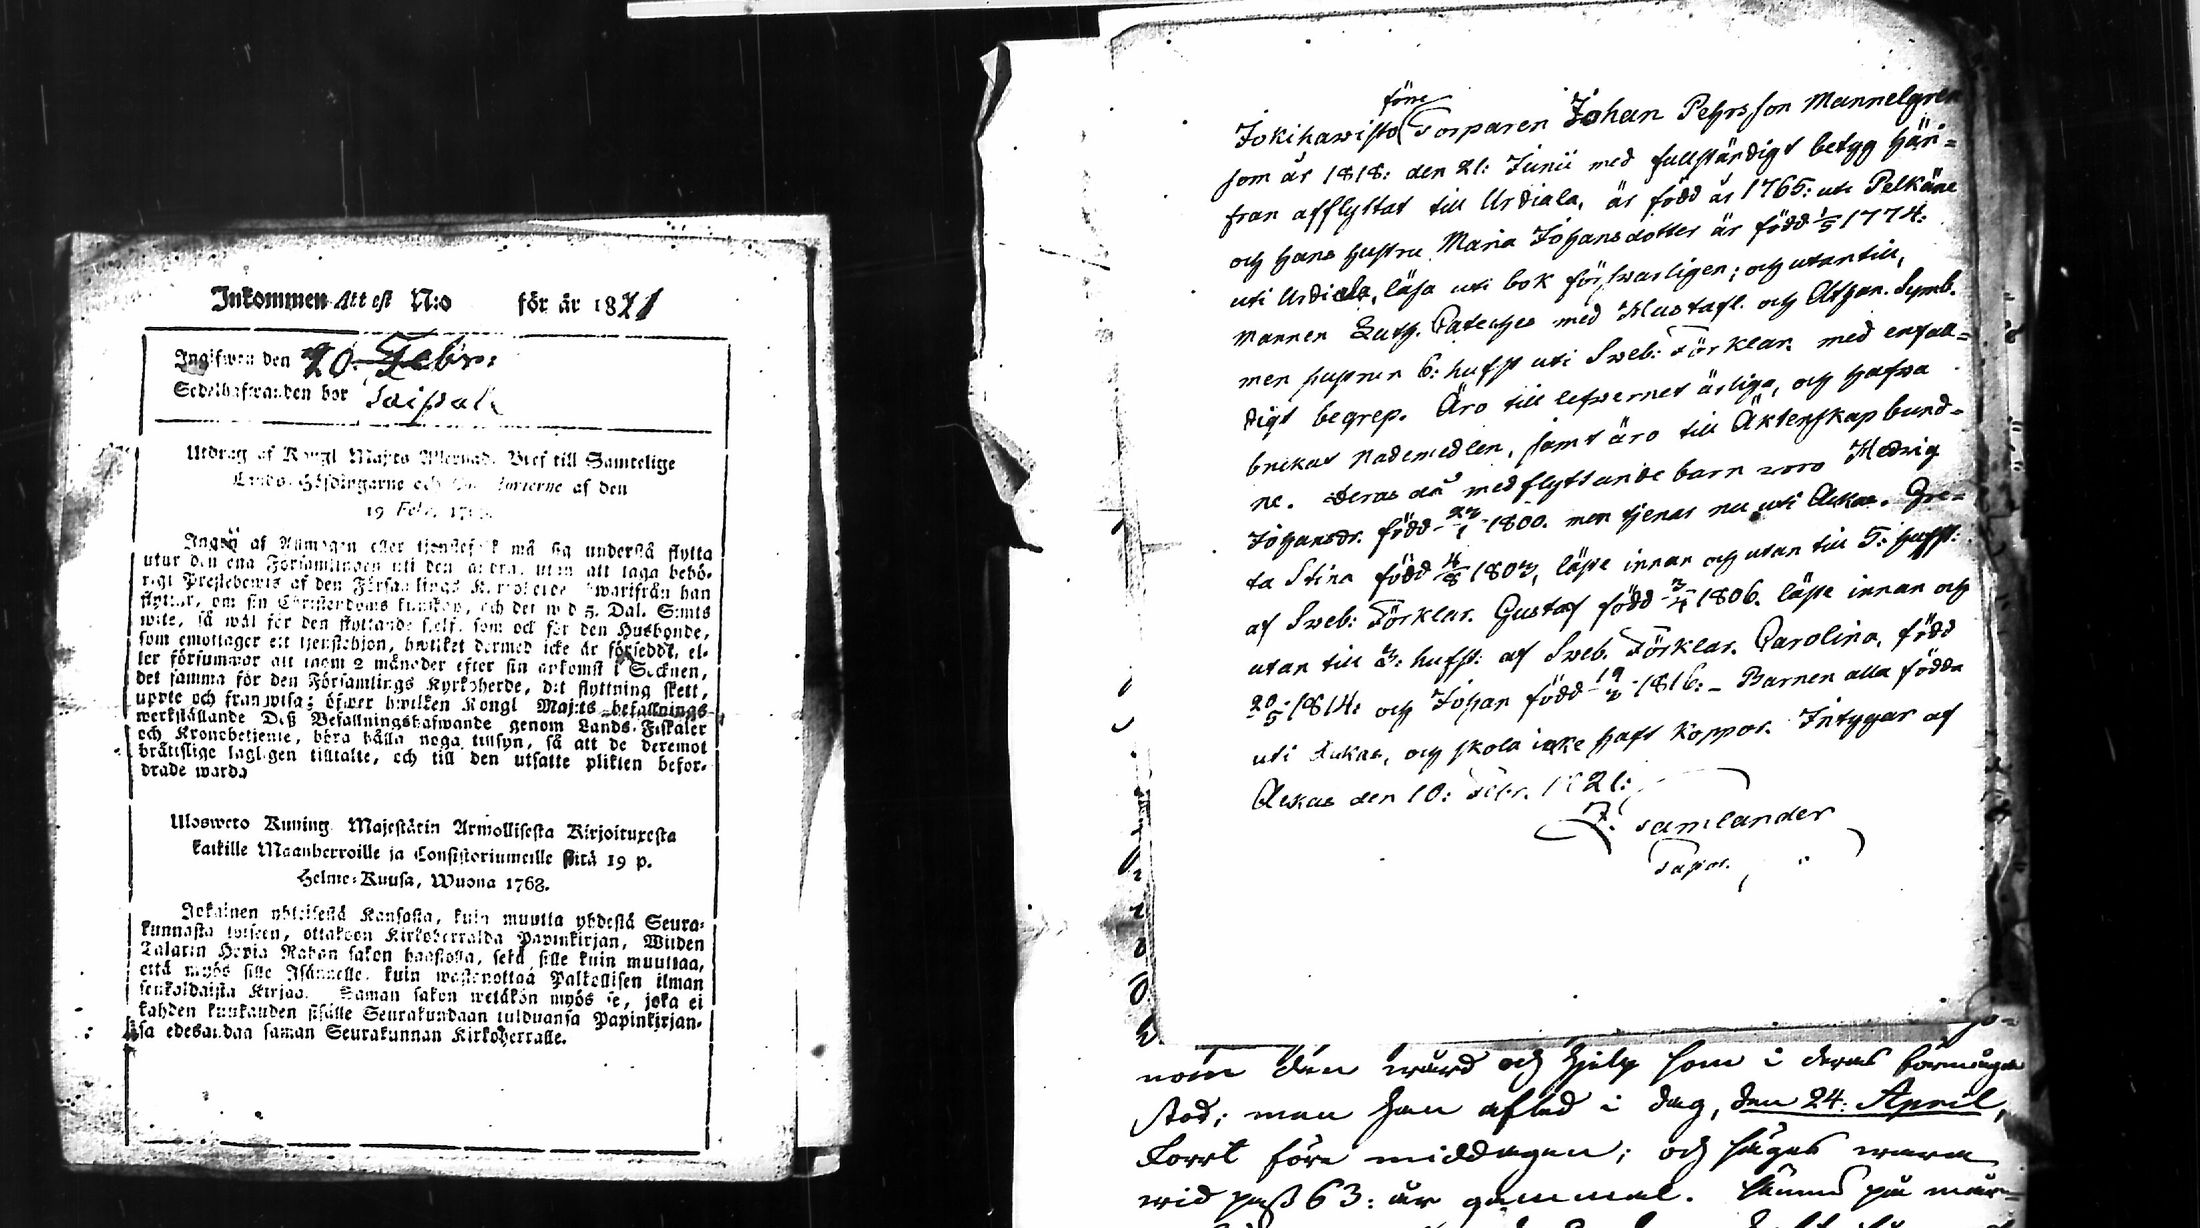 Inkommen Attest N:o för år 1821
Ingifwen den 20 Febr:
Sedelhafwanden bor
Utdrag af Kongl Maj:ts Allernåd. Bref till Samtelige
Lands-Höfdingarne och af den
19 Febr.
Ingen af Allmogen eller tjenstefolk må sig understå flytta
utur den ena Församlingen uti den andra, utan att taga behö-
rigt Prestebewis af den Församlings Kyrkoherde hwarifrån han
flyttar, om sin Christendoms kunskap, och det wid 5. Dal. S:mts
wite, så wäl för den flyttande sjelf, som ock för den Husbonde,
som emottager ett tjenstehjon, hwilket dermed icke är förseddt, el-
ler försummar att inom 2 månader efter sin ankomst i Socknen,
det samma för den Församlings Kyrkoherde, dit flyttning skett,
uppte och framwisa; öfwer hwilken Kongl Maj:ts befallnings
werkställande Deß Befallningshafwande genom Lands-Fiskaler
och Kronobetjente, böra hålla noga tillsyn, så att de deremot
bråttslige lagligen tilltalte, och till den utsatte plikten befor-
drade warda
Ulosweto Kuning. Majestätin Armollisesta Kirjoituxesta
kaikille Maanherroille ja Consistoriumeille siitä 19 p.
Helme-Kuusa, Wuona 1768.
Jokainen yhteisestä Kansasta, kuin muutta yhdestä Seura-
kunnasta toiseen, ottakoon Kirkoherralda Papinkirjan, Wiiden
Talarin Hopia Rahan sakon haastolla, sekä sille kuin muuttaa,
että myös sille Isännelle, kuin wastanottaa Palkollisen ilman
senkaldaista Kirjaa. Saman sakon wetäkön myös se, joka ei
kahden kuukauden sisälle Seurakundaan tulduansa Papinkirjan-
sa edesandaa saman Seurakunnan Kirkoherralle.
förre
Jokihawisto Torparen Johan Pehrsson Mannelgren
som år 1818: den 21: Junii med fullständigt betyg här-
från afflyttat till Urdiala, är född år 1765: uti Pelkäne
och hans hustru Maria Johansdotter är född 1/5 1774:
uti Urdiala, läsa uti bok försvarligen; och utantill,
mannen Luth. Cateches med Hustafl. och Athan. Symb.
men hustrun 6: hufst uti Sweb: Förklar: med enfall-
digt begrep. Äro till lefwernet ärliga, och hafwa
brukat Nådemedlen, samt äro till Äktenskap bund-
ne. Deras då medflyttande barn woro Hedvig
Johansdr. född 1800. men tjenar nu uti Ackas. Gre-
ta Stina född 4/8 1803, läste innan och utan till 5: hufst:
af Sweb: Förklar. Gustaf född 3/4 1806. läste innan och
utan till 3: hufst: af Sweb. Förklar. Carolina, född
20/5 1814: och Johan född 1816: – Barnen alla födda
uti Ackas, och skola icke haft koppor. Intygar af
Ackas den 10: Febr. 1821:
J. Samlander
nom den wård och hjelp som i deras förmåga
stod; men han afled i dag, den 24: April,
kort före middagen; och säges wara
wid paß 63: år gammal.